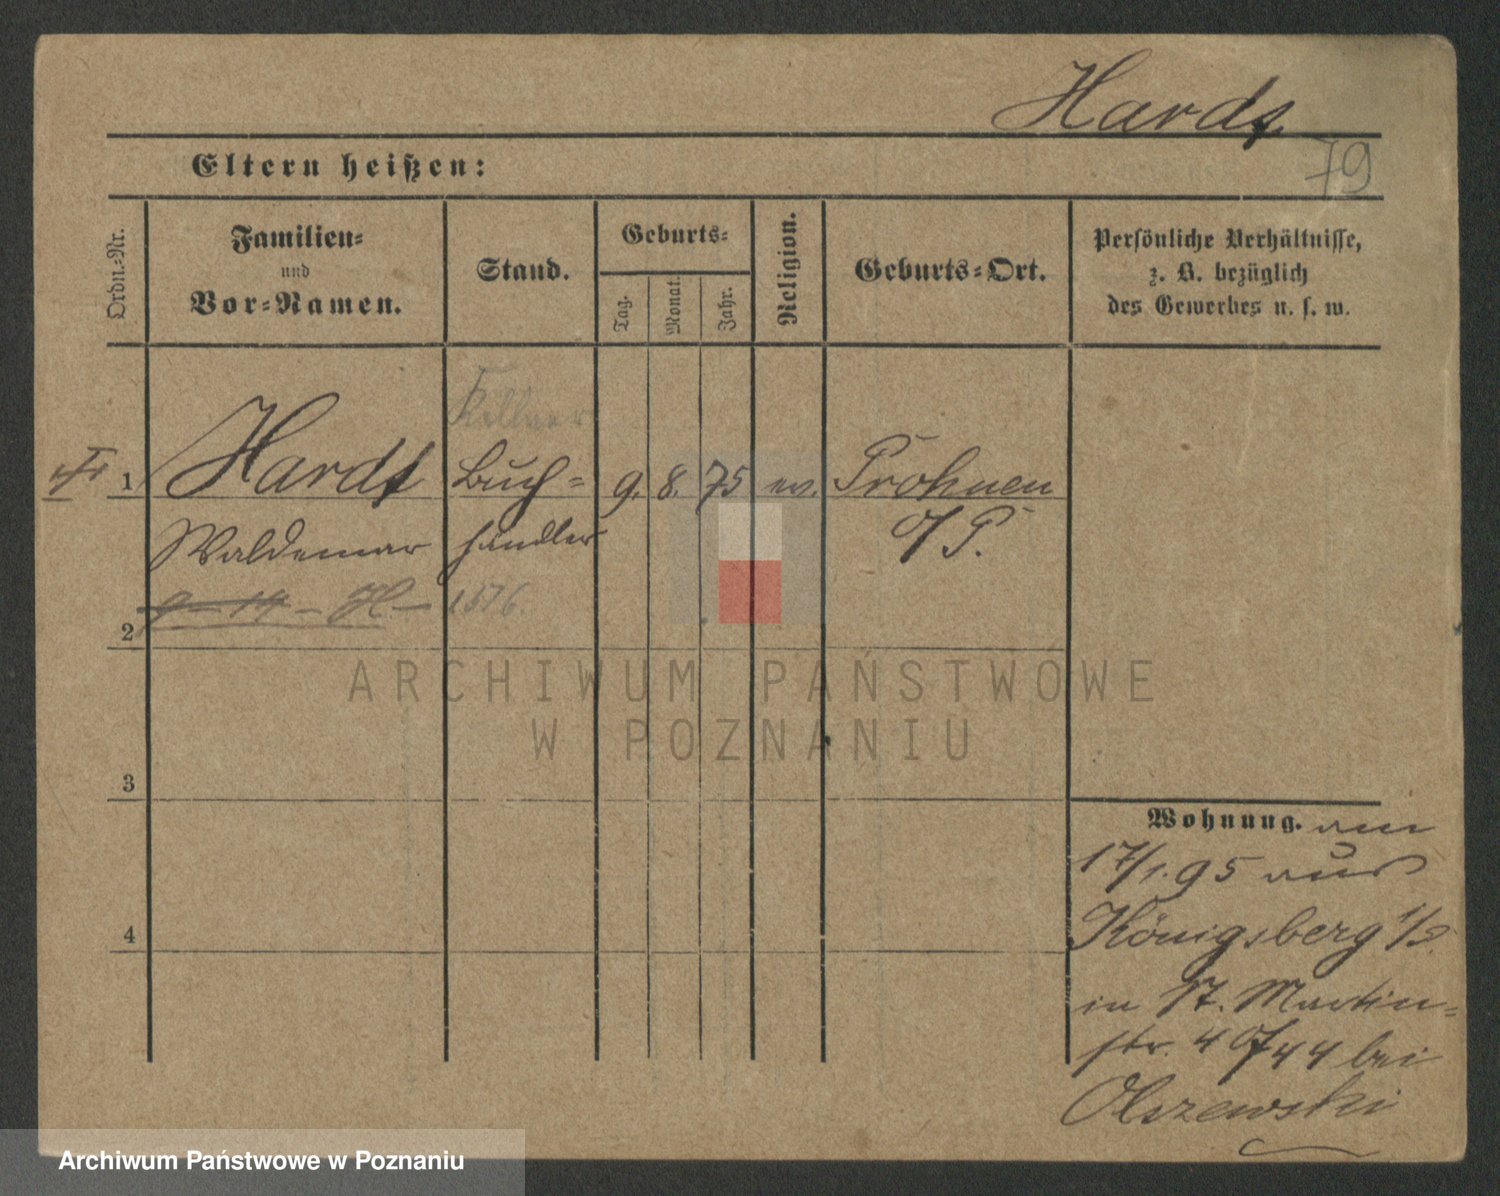 Hardt
79
Eltern heißen:
Ordn.-Nr.
Familien-
und
Vor-Namen.
Stand.
Geburts-
Tag.
Monat.
Jahr.
Religion.
Geburts-Ort.
Persönliche Verhältnisse,
z. B. bezüglich
des Gewerbes u. s. w.
Kellner
1 Hardt Buch- 9. 8. 75 ev. Pröhnen
Waldemar händler O/P.
2
3
4
Wohnung. am
17/1. 95 aus
Königsberg
in St. Martin-
str. 40/44 bei
Olszewski
ARCHIWUM PAŃSTWOWE
W POZNANIU
Archiwum Państwowe w Poznaniu